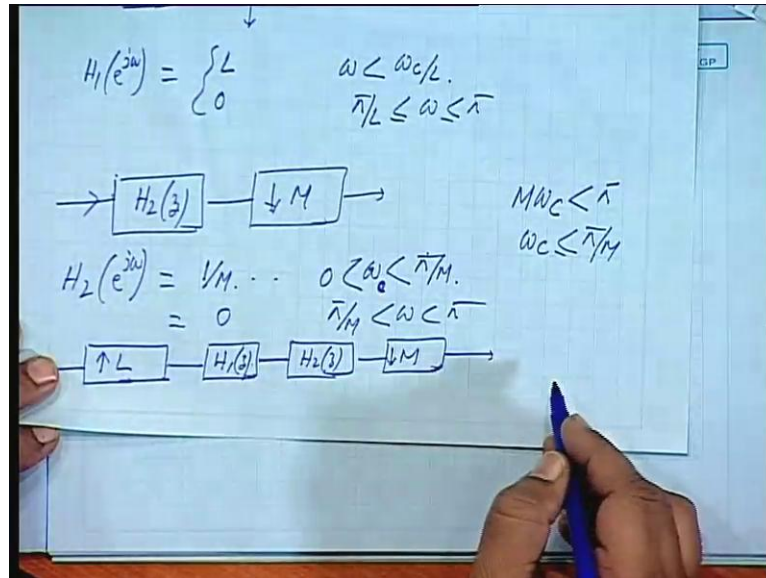 H₁(e^{jω}) = { L    ω < ω_c/L.
{ 0    π/L ≤ ω ≤ π
→ H₂(z) — ↓M →    Mω_c < π
ω_c ≤ π/M
H₂(e^{jω}) = 1/M. ...    0 < ω_c < π/M.
= 0    π/M < ω < π
↑L — H₁(z) — H₂(z) — ↓M →
GP